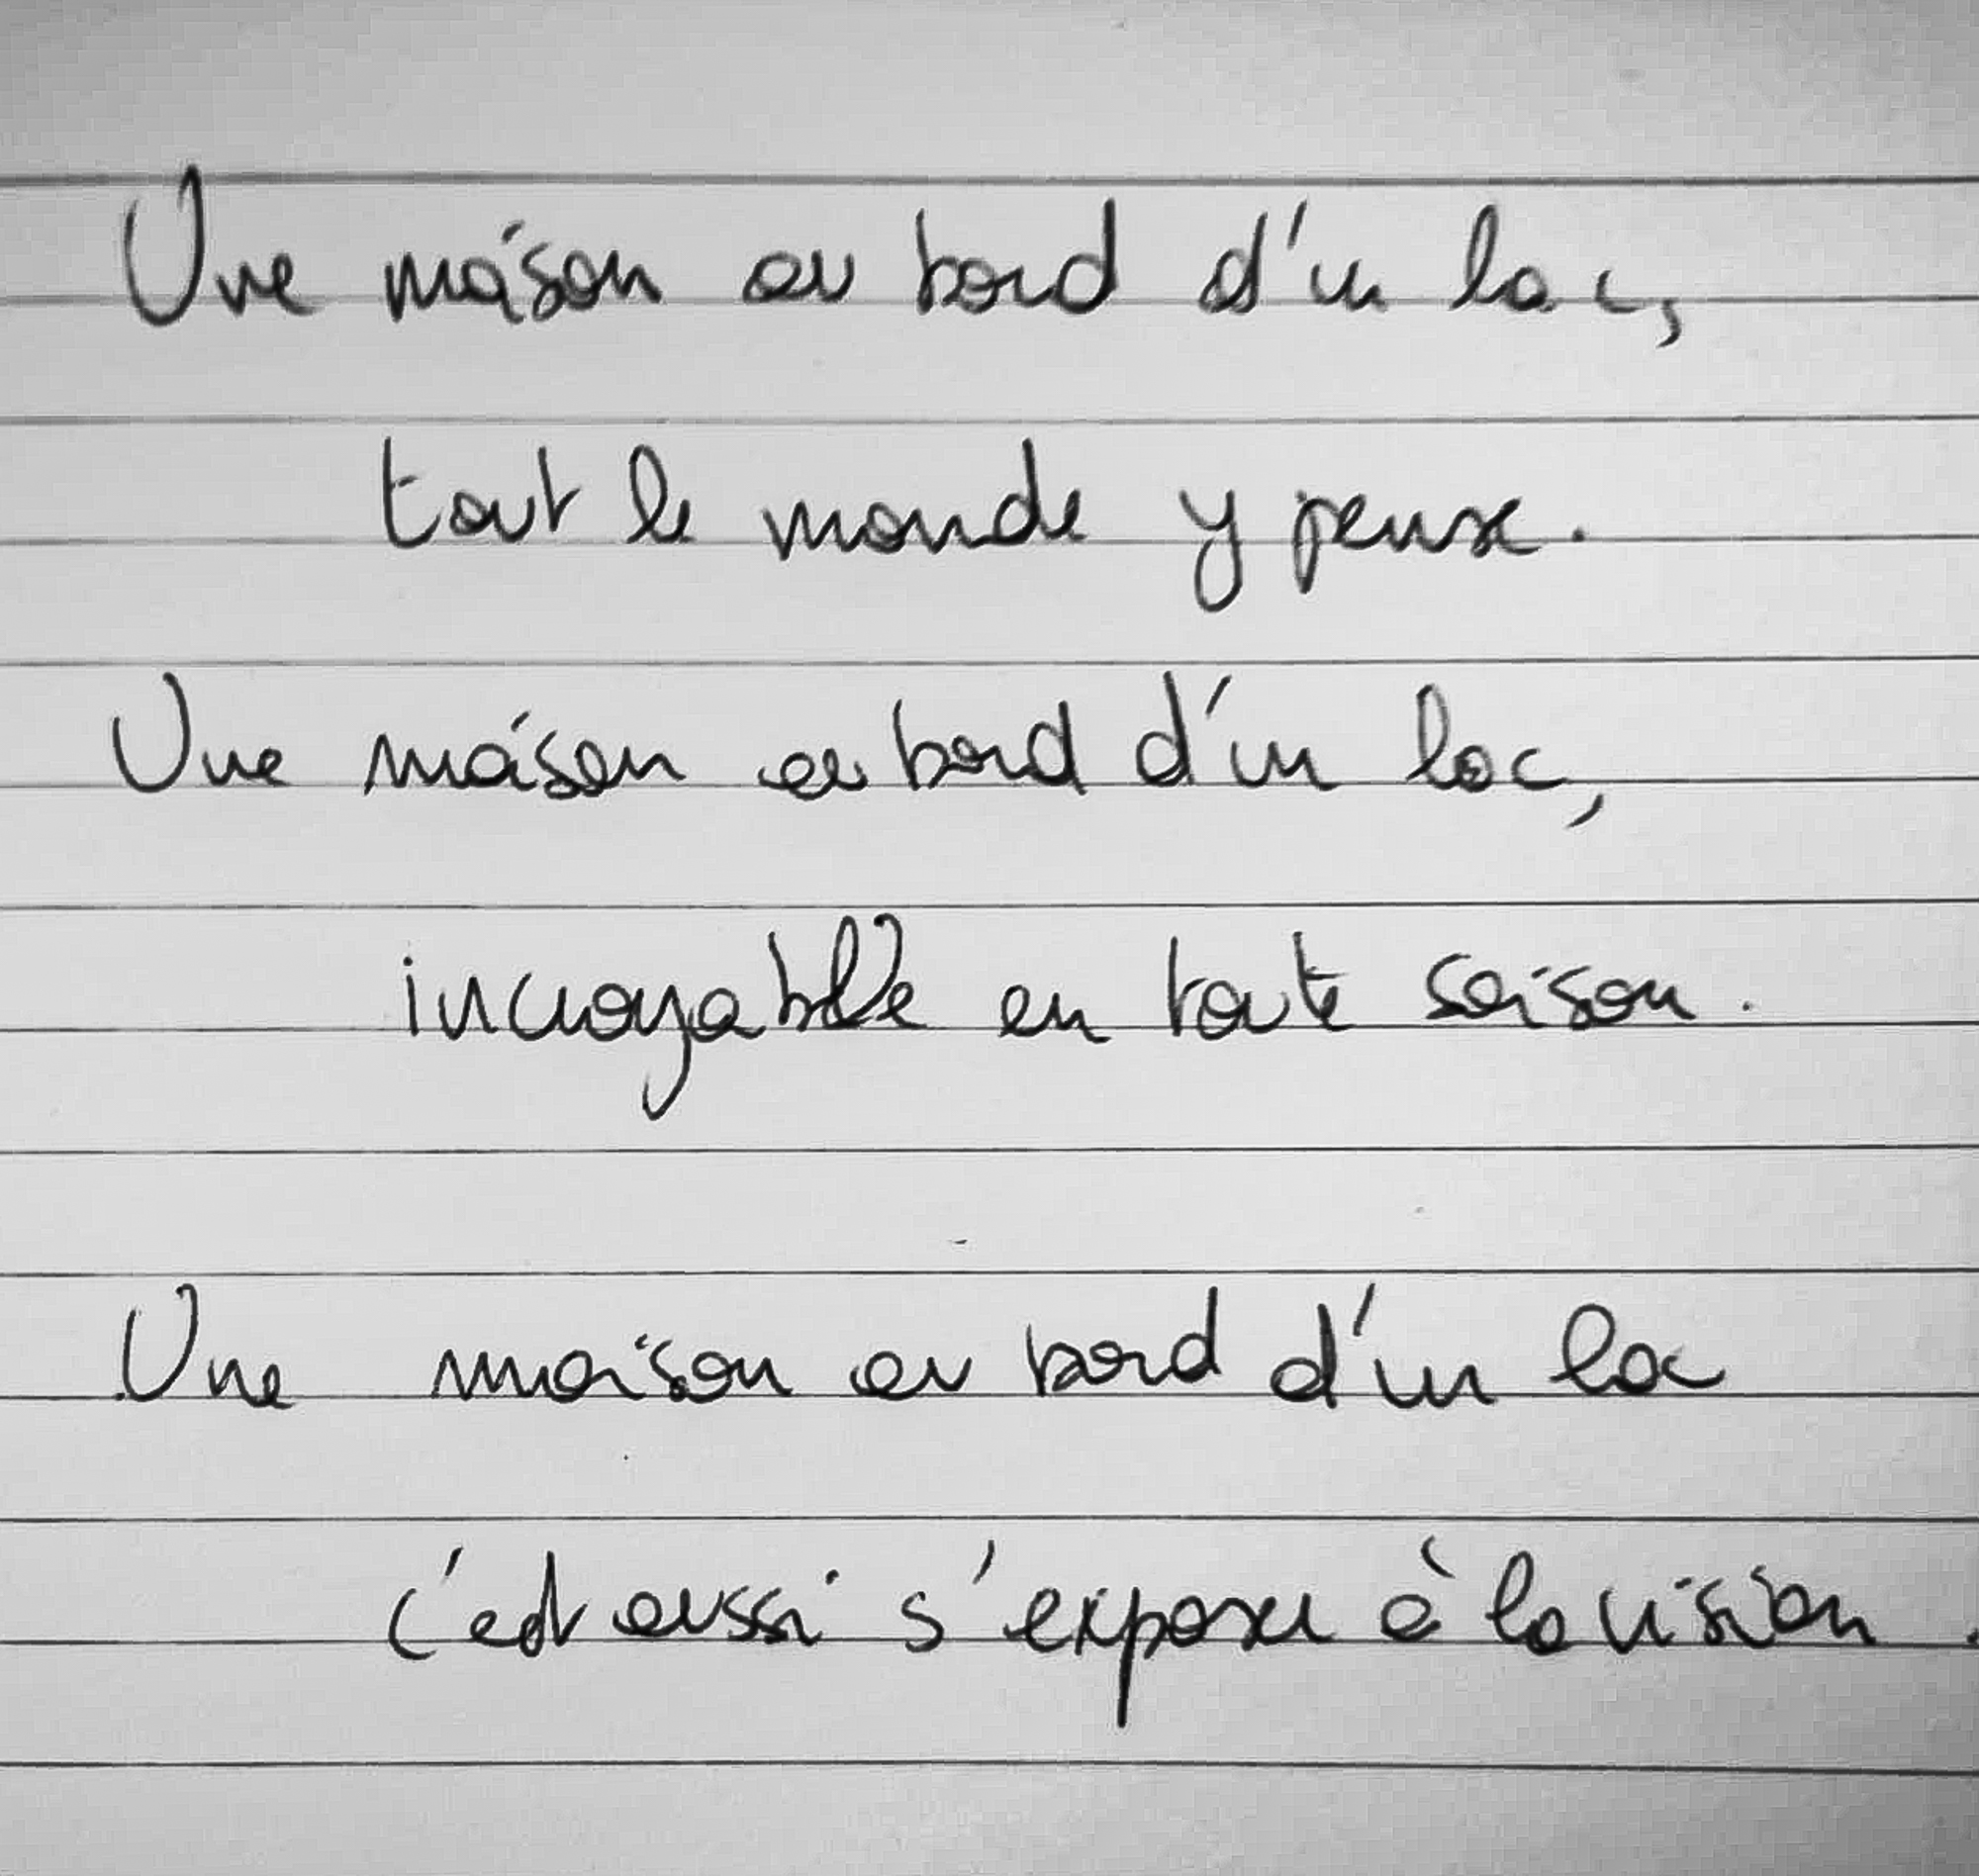 Une maison au bord d'un lac,
tout le monde y pense.
Une maison au bord d'un lac,
incroyable en toute saison.
Une maison au bord d'un lac
c'est aussi s'exposer à la vision.